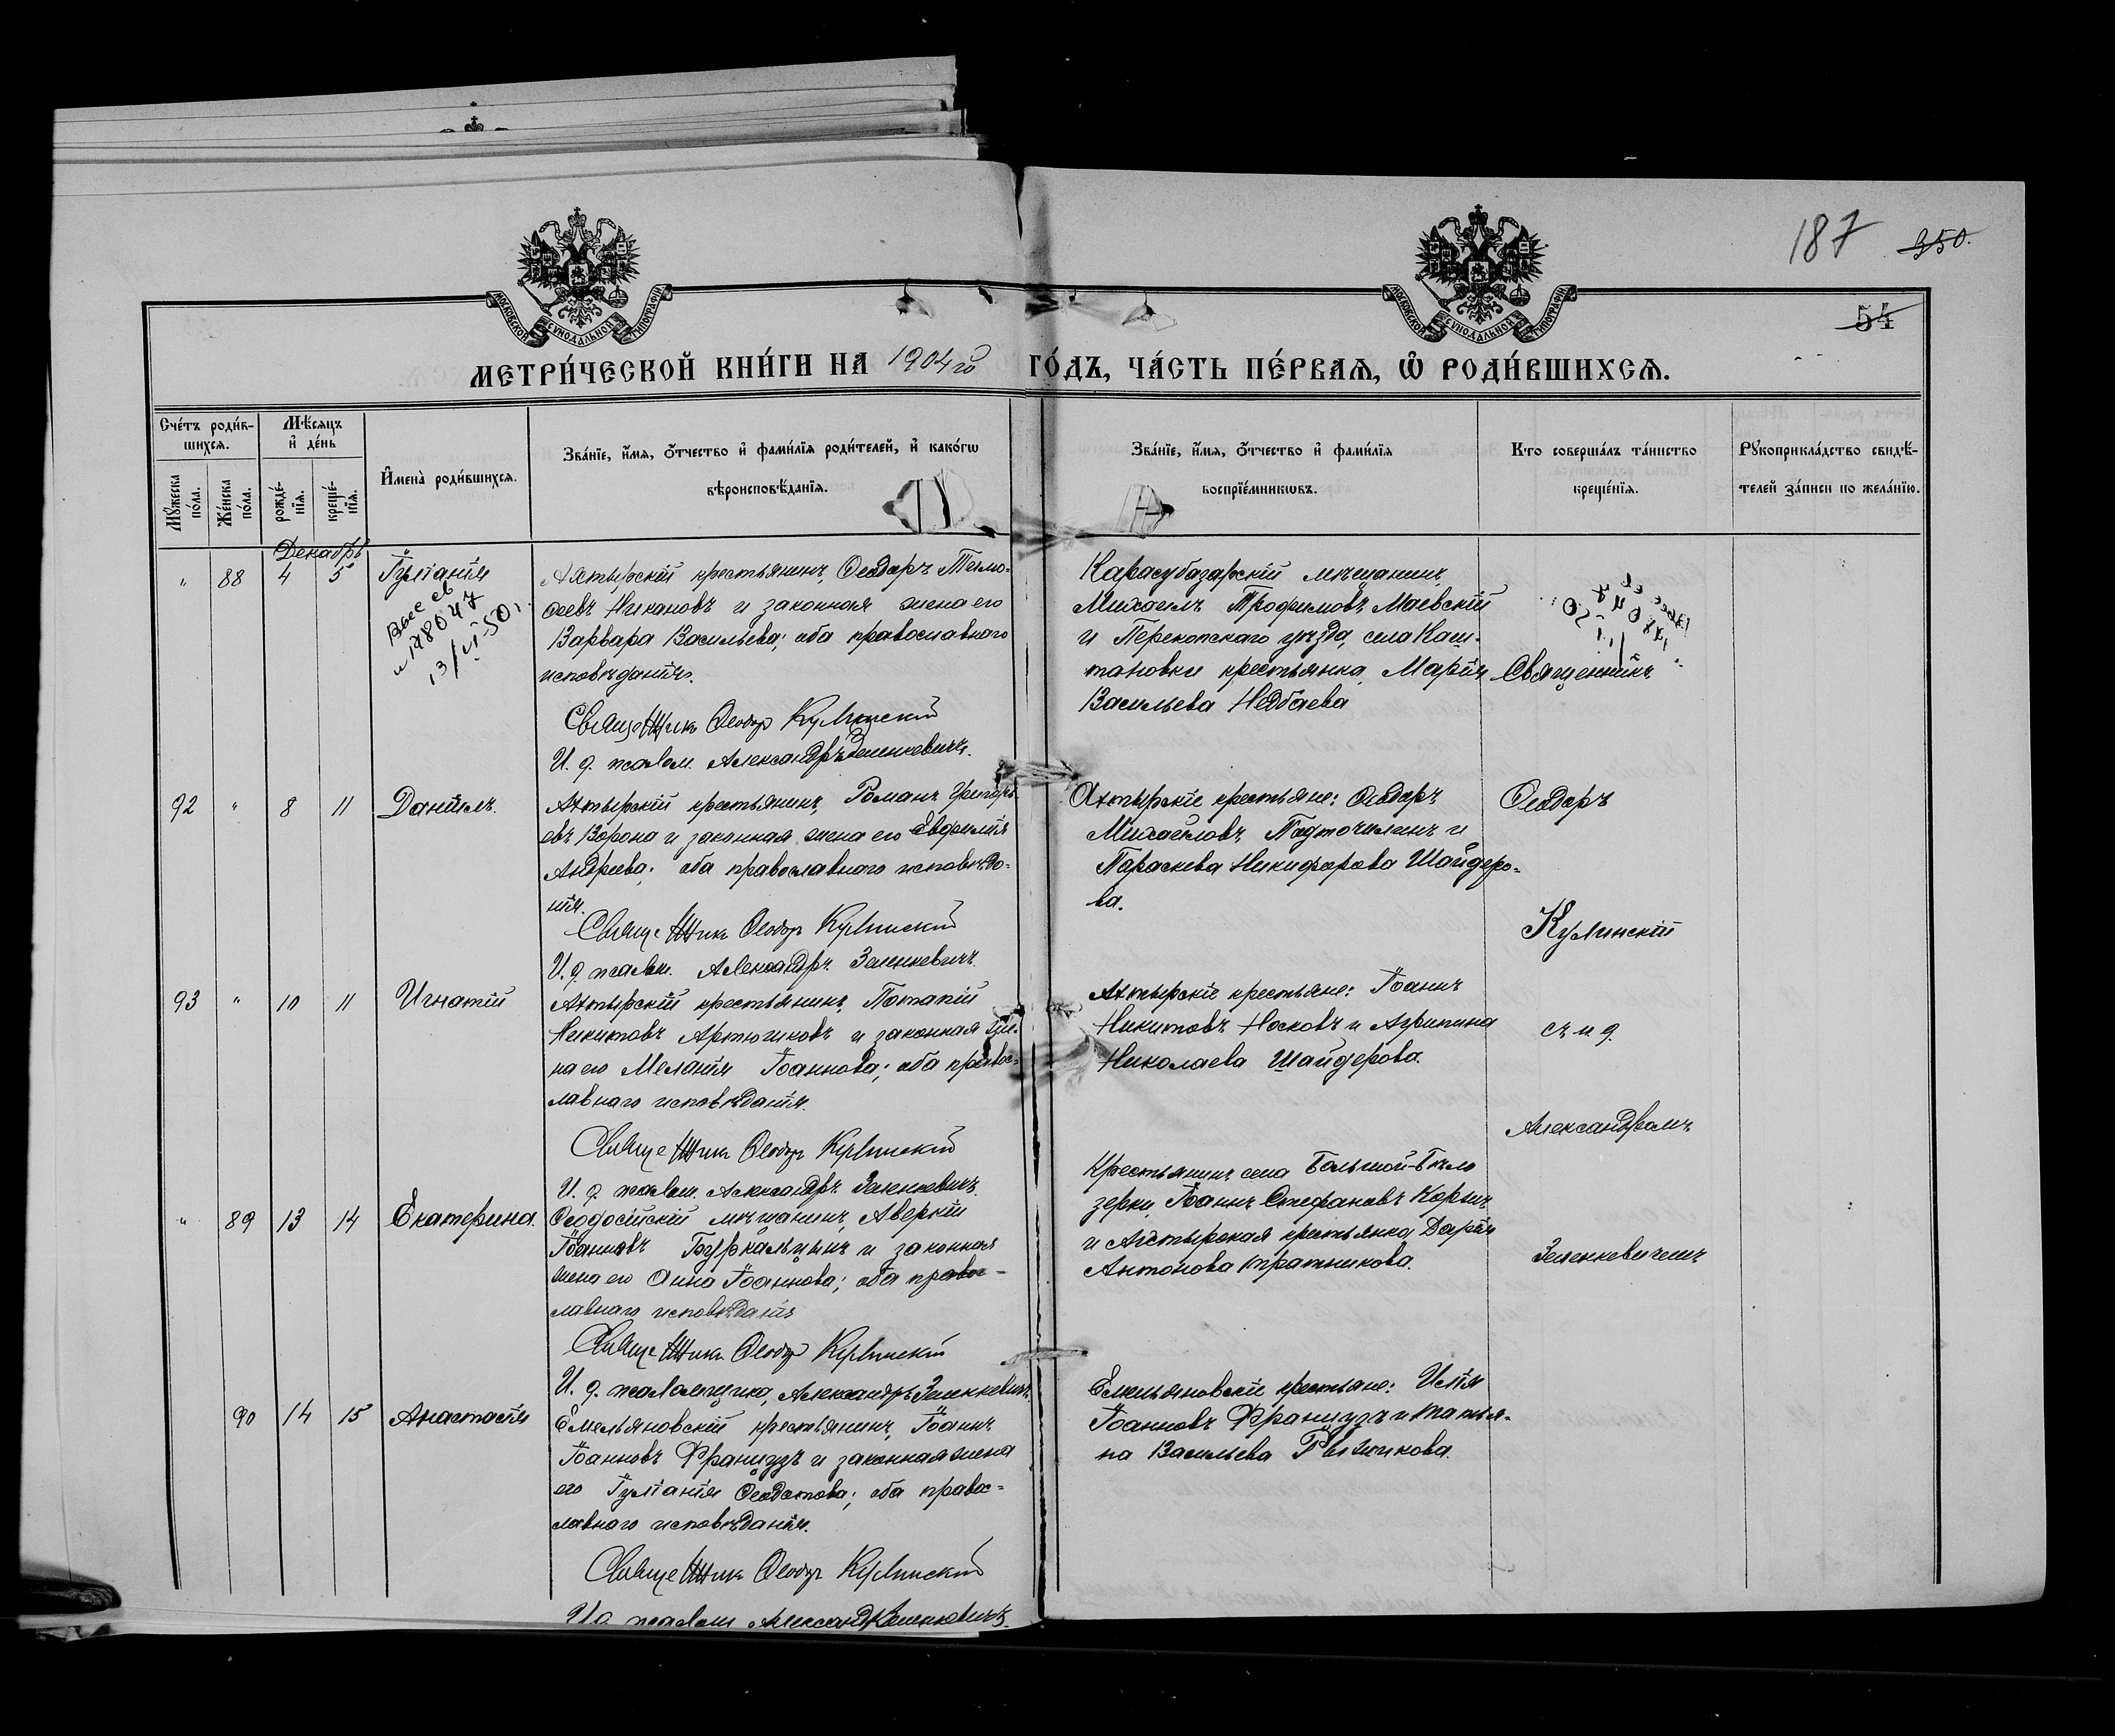 187 350.
54
МОСКОВСКОЙ СѴНОДАЛЬНОЙ ТИПОГРАФІИ
МОСКОВСКОЙ СѴНОДАЛЬНОЙ ТИПОГРАФІИ
МЕТРИ́ЧЕСКОЙ КНИ́ГИ НА 1904го ГО́ДЪ, ЧА́СТЬ ПЕ́РВАѦ, Ѡ҆ РОДИ́ВШИХСѦ.
Сче́тъ роди́в-
шихсѧ.
Мꙋ́жеска по́ла.
Же́нска по́ла.
Мѣ́сѧцъ
и҆ де́нь
рожде́-
нїѧ.
креще́-
нїѧ.
И҆мена̀ роди́вшихсѧ.
Зва́нїе, и҆́мѧ, ѻ҆́тчество и҆ фами́лїѧ роди́телей, и҆ како́гѡ
вѣроисповѣ́данїѧ.
Зва́нїе, и҆́мѧ, ѻ҆́тчество и҆ фами́лїѧ
воспрїе́мникѡвъ.
Кто соверша́лъ та́инство
креще́нїѧ.
Рꙋкоприкла́дство свидѣ́-
телей за́писи по жела́нїю.
Декабрь
" 88 4 5 Іуліанія
13/VI-50г.
Ахтырскій крестьянинъ, Ѳеодоръ Тимо-
ѳеевъ Никановъ и законная жена его
Варвара Васильева; оба православнаго
исповѣданія.
Священникъ Ѳеодоръ Кулинскій
И. д. псалом. Александръ Зеленкевичъ.
Карасубазарскій мѣщанинъ,
Михаилъ Трофимовъ Маевскій
и Перекопскаго уѣзда, села Каш-
тановки крестьянка, Марія
Васильева Недбаева
Священникъ
92 " 8 11 Даніилъ.
Ахтырскій крестьянинъ, Романъ Григорь-
евъ Ворона и законная жена его Евфимія
Андреева; оба православнаго исповѣда-
нія.
Священникъ Ѳеодоръ Кулинскій
И. д. псалом. Александръ Зеленкевичъ.
Ахтырскіе крестьяне: Ѳеодоръ
Михайловъ Подточилинъ и
Параскева Никифорова Шайдеро-
ва.
Ѳеодоръ
Кулинскій
93 " 10 11 Игнатій
Ахтырскій крестьянинъ, Потапій
Никитовъ Артюшковъ и законная же-
на его Меланія Іоаннова; оба правос-
лавнаго исповѣданія.
Священникъ Ѳеодоръ Кулинскій
И. д. псалом. Александръ Зеленкевичъ.
Ахтырскіе крестьяне: Іоаннъ
Никитовъ Носковъ и Агрипина
Николаева Шайдерова.
съ и. д.
Александромъ
" 89 13 14 Екатерина.
Ѳеодосійскій мѣщанинъ, Аверкій
Іоанновъ и законная
жена его Анна Іоаннова; оба правос-
лавнаго исповѣданія
Священникъ Ѳеодоръ Кулинскій
И. д. псаломщика, Александръ Зеленкевичъ.
Крестьянинъ села Большой-Бѣло
зерки, Іоаннъ Стефановъ
и Ахтырская крестьянка, Дарія
Антонова
Зеленкевичемъ
90 14 15 Анастасія
Емельяновскій крестьянинъ, Іоаннъ
Іоанновъ Французъ и законная жена
его Іуліанія Ѳеодотова; оба правос-
лавнаго исповѣданія.
Священникъ Ѳеодоръ Кулинскій
И. д. псалом. Александръ Зеленкевичъ.
Емельяновскіе крестьяне: Илія
Іоанновъ Французъ и Татья-
на Васильева